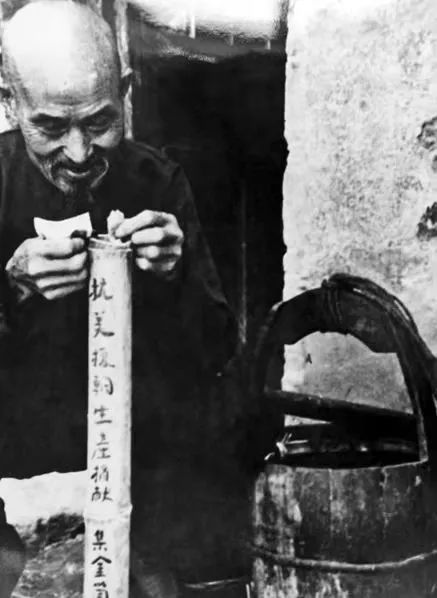 抗美援朝生產捐献 集金筒